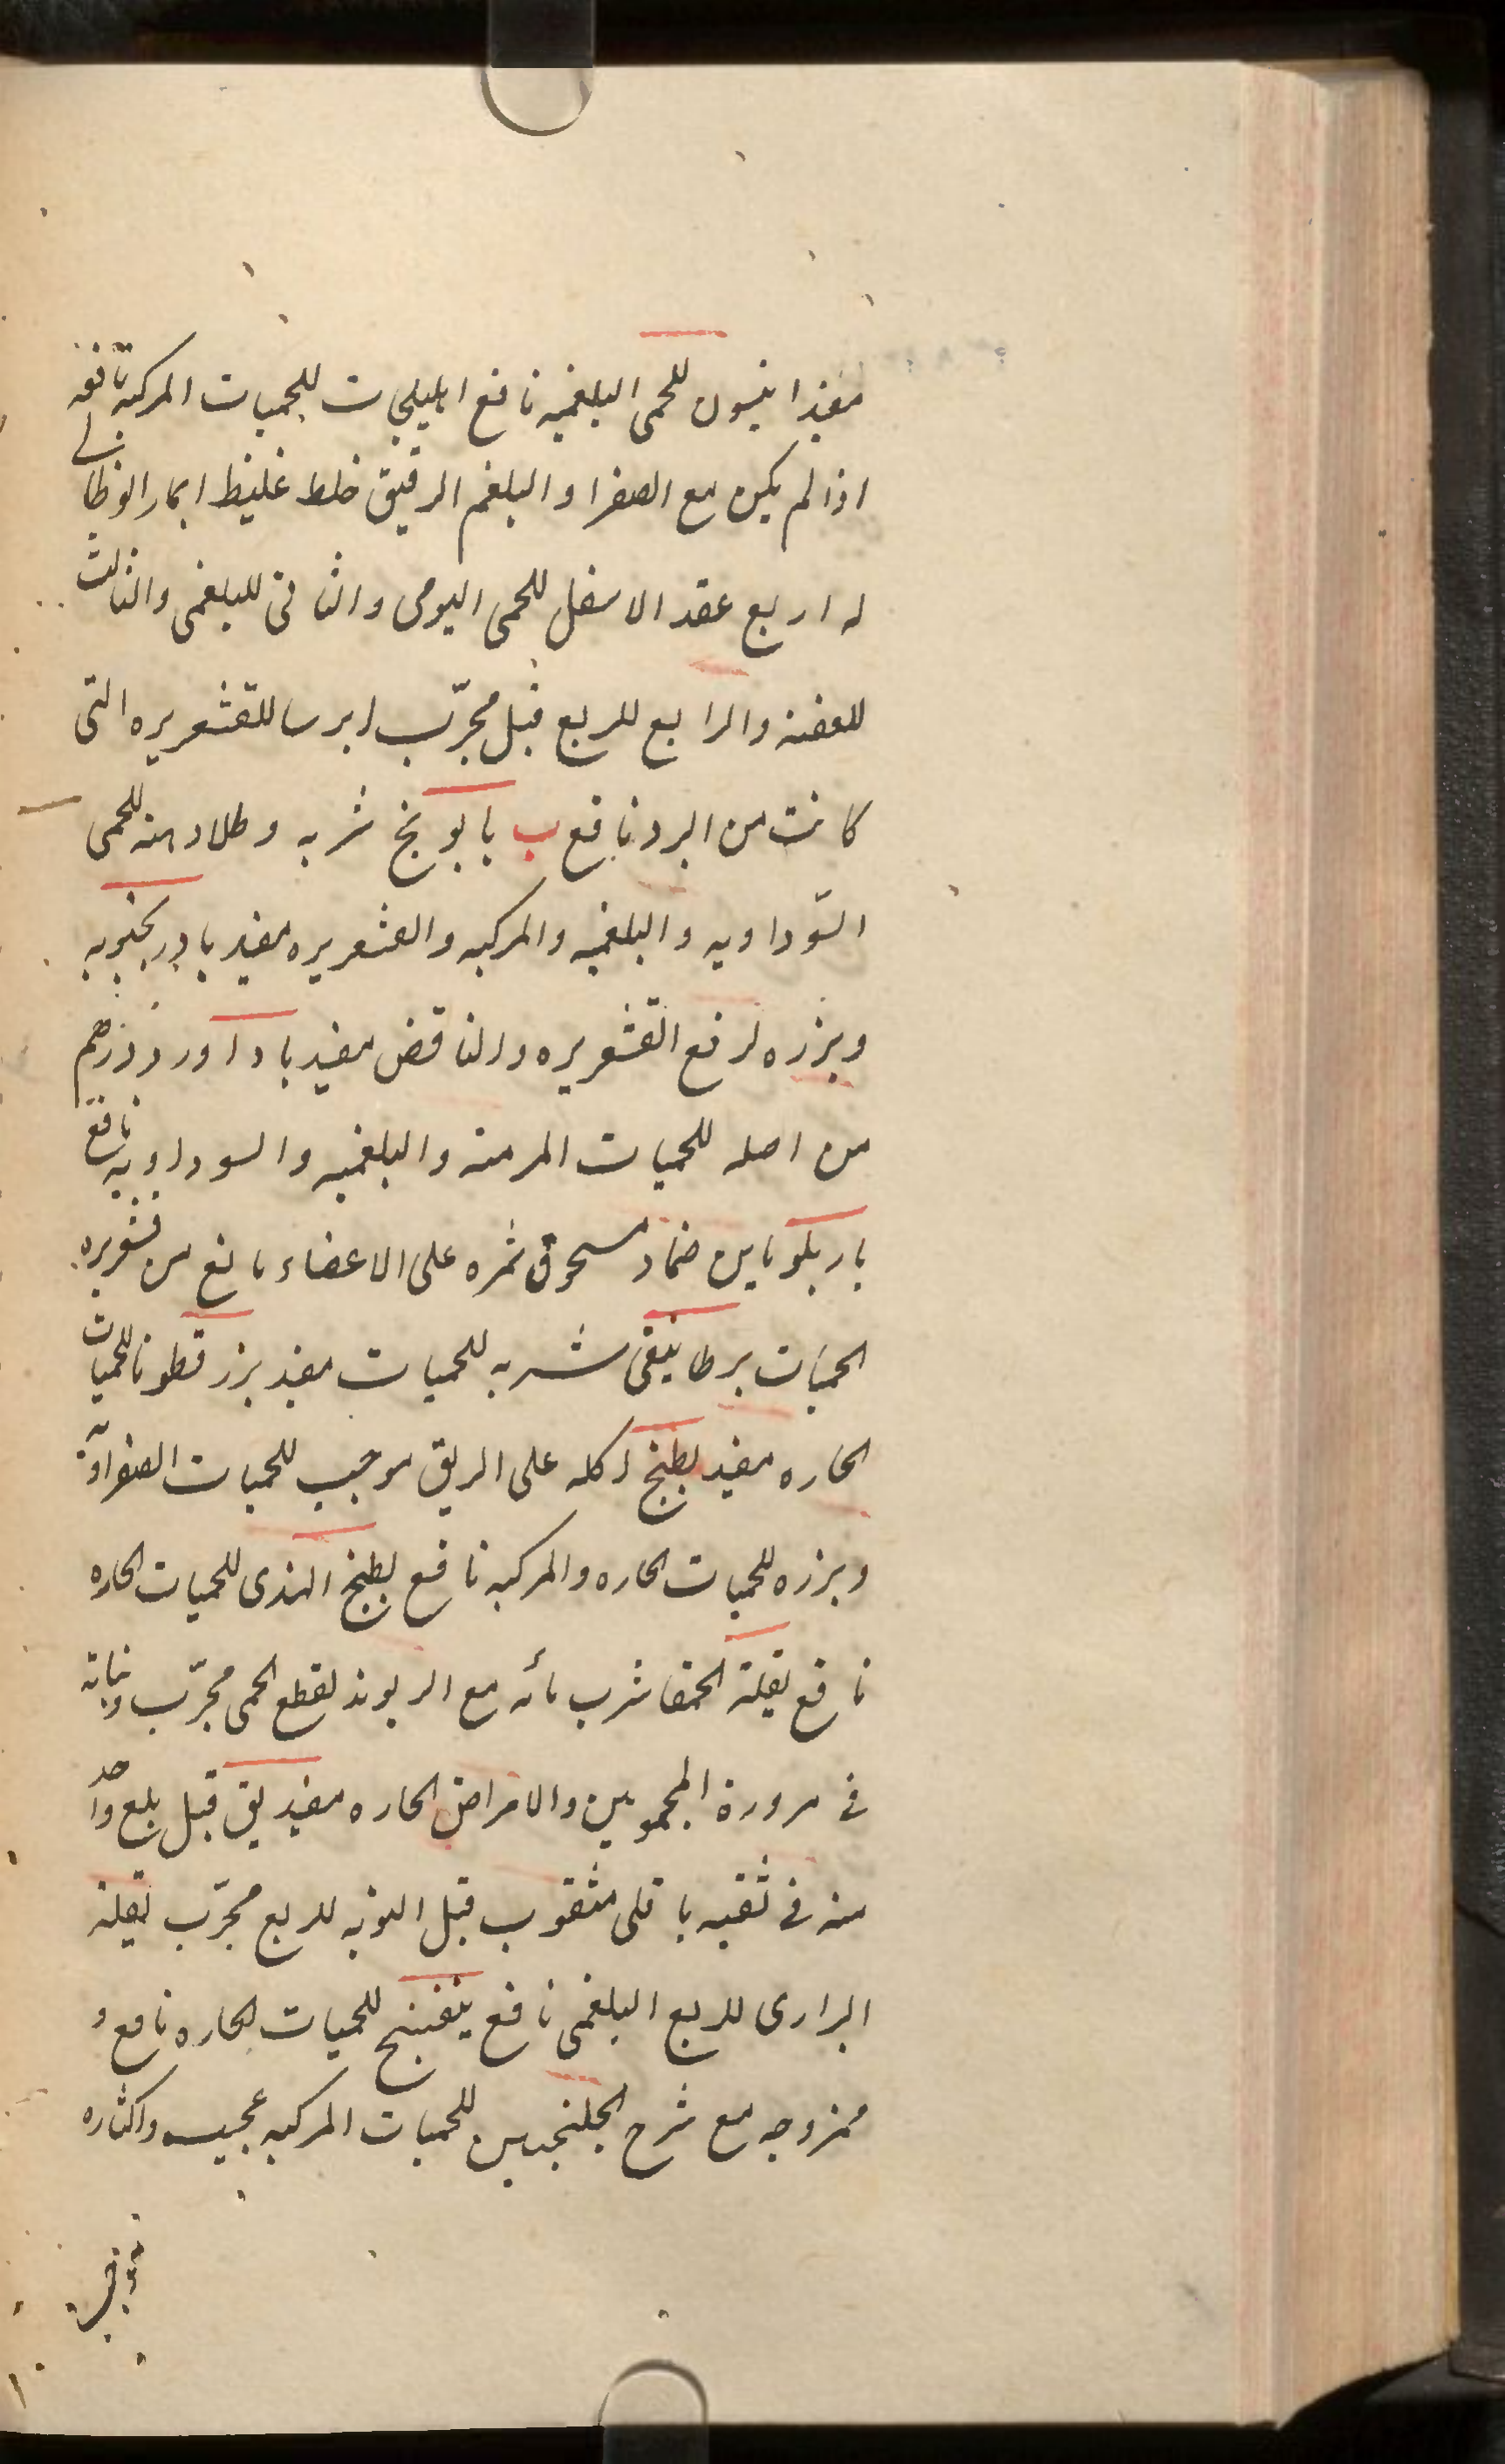 مفيد انيسون للحمى البلغميه نافع اهليلجات للحميات المركبه نافعه
اذا لم يكن مع الصفرا والبلغم الرقيق خلط غليظ
له اربع عقد الاسفل للحمى اليومى والثانى للبلغمى والثالث
للعفنه والرابع للربع قيل مجرّب ايرسا للقشعريره التى
كانت من البرد نافع ب بابونج شربه وطلاء منه للحمى
السّوداويه والبلغميه والمركبه والقشعريره مفيد بادرنجبويه
وبزره لرفع القشعريره والنافض مفيد باداورد درهم
من اصله للحميات المزمنه والبلغميه والسوداويه نافع
ضماد مسحوق ثمره على الاعضاء مانع من قشعريره
الحميات برطانيقى شربه للحميات مفيد بزر قطونا للحميات
الحاره مفيد بطيخ اكله على الريق موجب للحميات الصفراويه
وبزره للحميات الحاره والمركبه نافع بطيخ الهندى للحميات الحاره
نافع بقلة الحمقا شرب مائه مع الريوند لقطع الحمى مجرّب ونباته
فى مزورة المحمومين والامراض الحاره مفيد بق قيل بلع واحد
منه فى ثقبه باقلى مثقوب قبل النوبه للربع مجرّب بقلة
البرارى للربع البلغمى نافع بنفسج للحميات الحاره نافع و
ممزوجه مع شرح الجلنجبين للحميات المركبه عجيب واكثاره